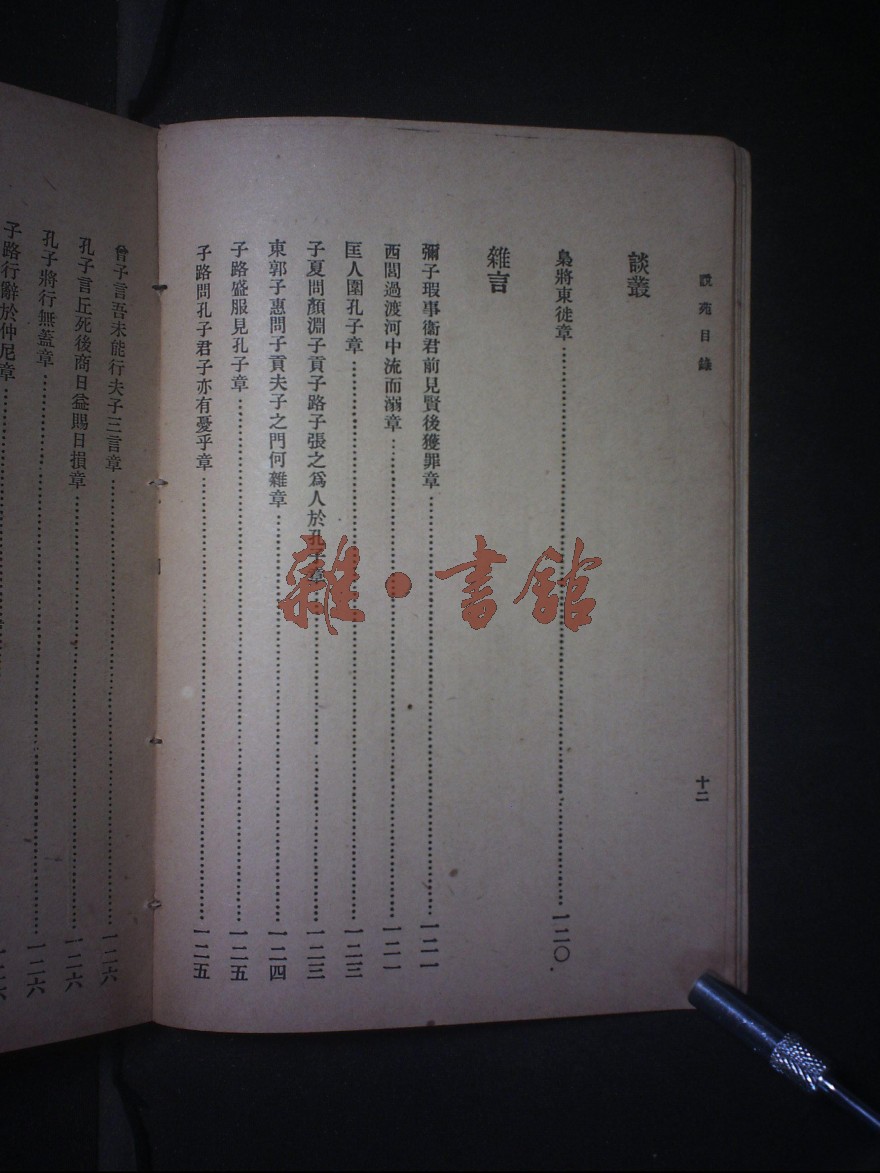 說苑目錄
十二
談叢
梟將東徙章……一二〇
雜言
彌子瑕事衞君前見賢後獲罪章……一二一
西閭過渡河中流而溺章……一二一
匡人圍孔子章……一二三
子夏問顏淵子貢子路子張之爲人於孔子章……一二三
東郭子惠問子貢夫子之門何雜章……一二四
子路盛服見孔子章……一二五
子路問孔子君子亦有憂乎章……一二五
曾子言吾未能行夫子三言章……一二六
孔子言丘死後商日益賜日損章……一二六
孔子將行無蓋章……一二六
子路行辭於仲尼章……一二六
雜·書館